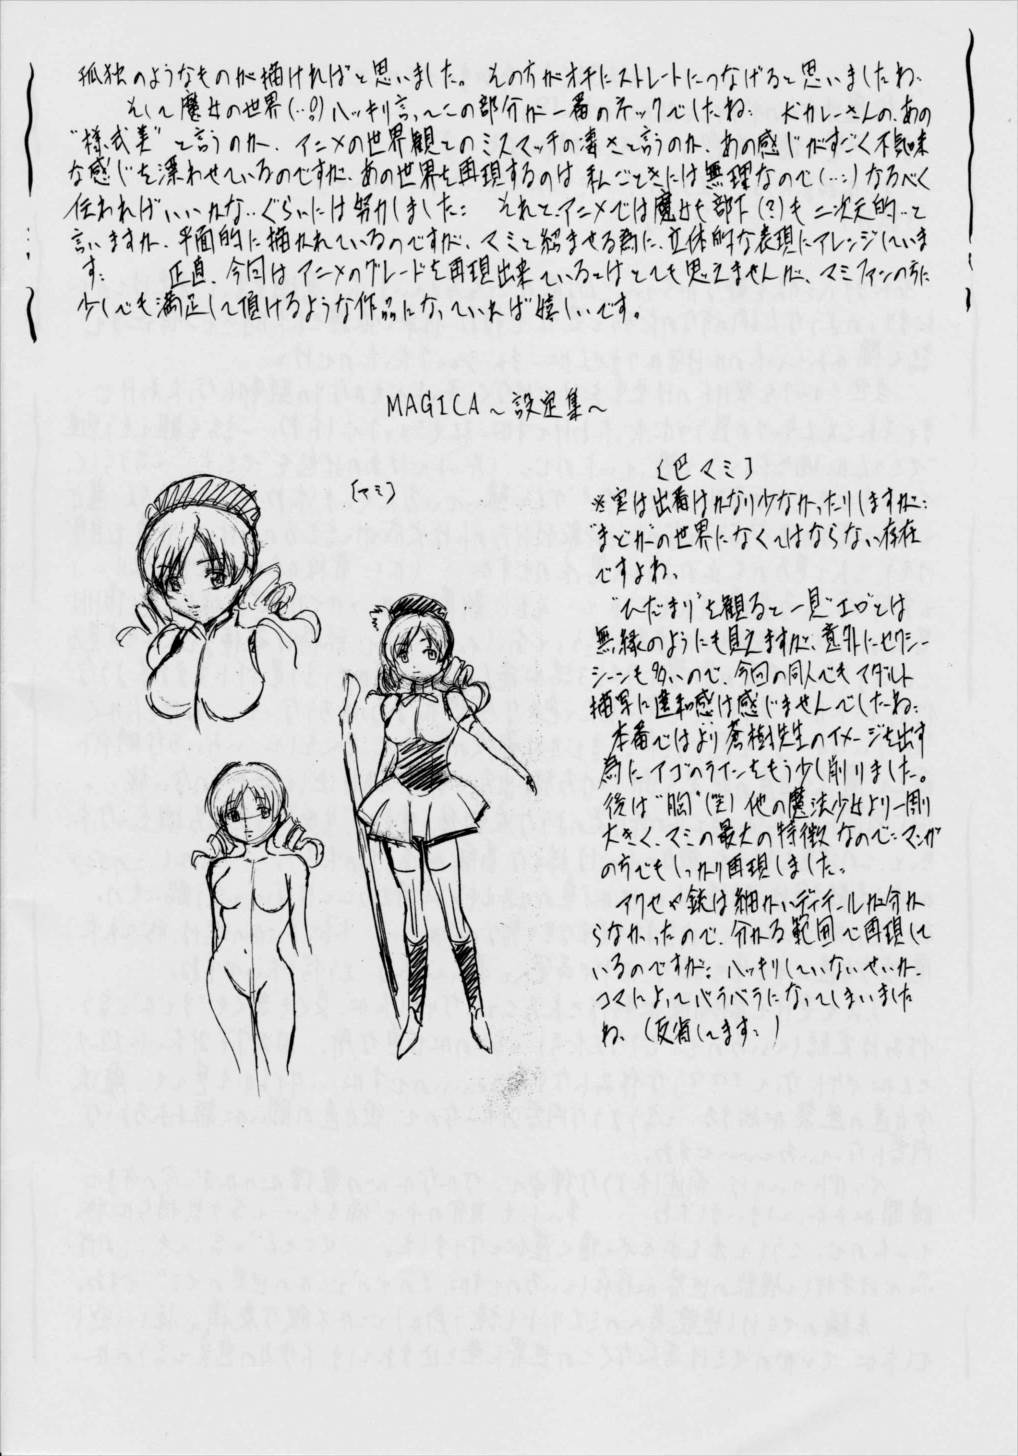 孤独のようなものが描ければと思いました。 その方がオチにストレートにつなげると思いましたね、
そして魔女の世界(…?)ハッキリ言ってこの部分が一番のネックでしたね: 犬カレーさんの、あの
"様式美"と言うのか、アニメの世界観とのミスマッチの凄さと言うのか、あの感じがすごく不気味
な感じを漂わせているのですが、あの世界を再現するのは 私ごときには無理なので(…:)なるべく
伝わればいいかな…ぐらいには努力しました: それと、アニメでは魔女も部下(?)も二次元的…と
言いますか、平面的に描かれているのですが、マミと絡ませる為に、立体的な表現にアレンジしていま
す: 正直、今回はアニメのグレードを再現出来ているとはとても思えませんが、マミファンの方に
少しでも満足して頂けるような作品になっていれば嬉しいです。
MAGICA〜設定集〜
[マミ]
[巴マミ]
※実は出番はかなり少なかったりしますが:
"まどか"の世界になくてはならない存在
ですよね、
"ひだまり"を観ると一見"エロ"とは
無縁のようにも見えますが、意外にセクシー
シーンも多いので、今回の同人でもアダルト
描写に違和感は感じませんでしたね:
本番ではより蒼樹先生のイメージを出す
為にアゴのラインをもう少し削りました。
後は"胸"(笑)他の魔法少女より一周り
大きく、マミの最大の特徴なので:マンガ
の方でもしっかり再現しました。
アクセや銃は細かいディテールが分か
らなかったので、分かる範囲で再現して
いるのですが: ハッキリしていないせいか、
コマによってバラバラになってしまいました
ね、(反省してます:)